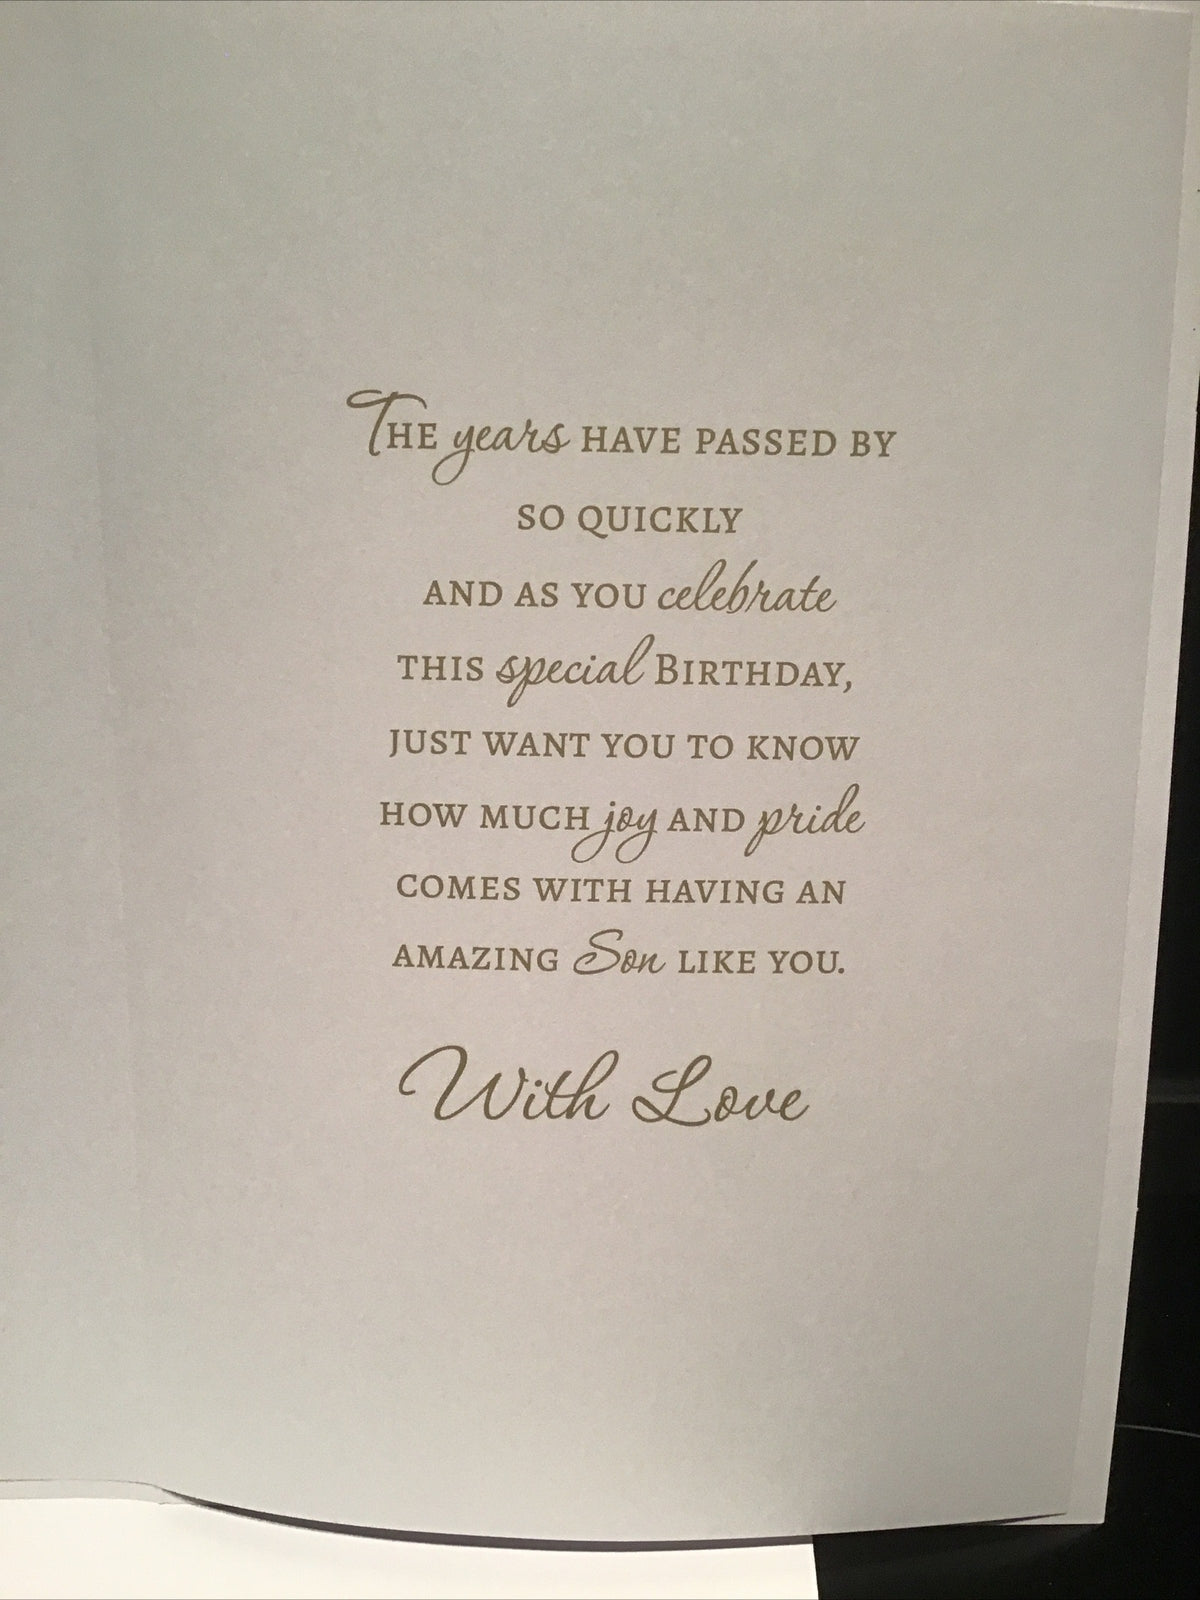 The years have passed by
so quickly
and as you celebrate
this special Birthday,
just want you to know
how much joy and pride
comes with having an
amazing Son like you.
With Love